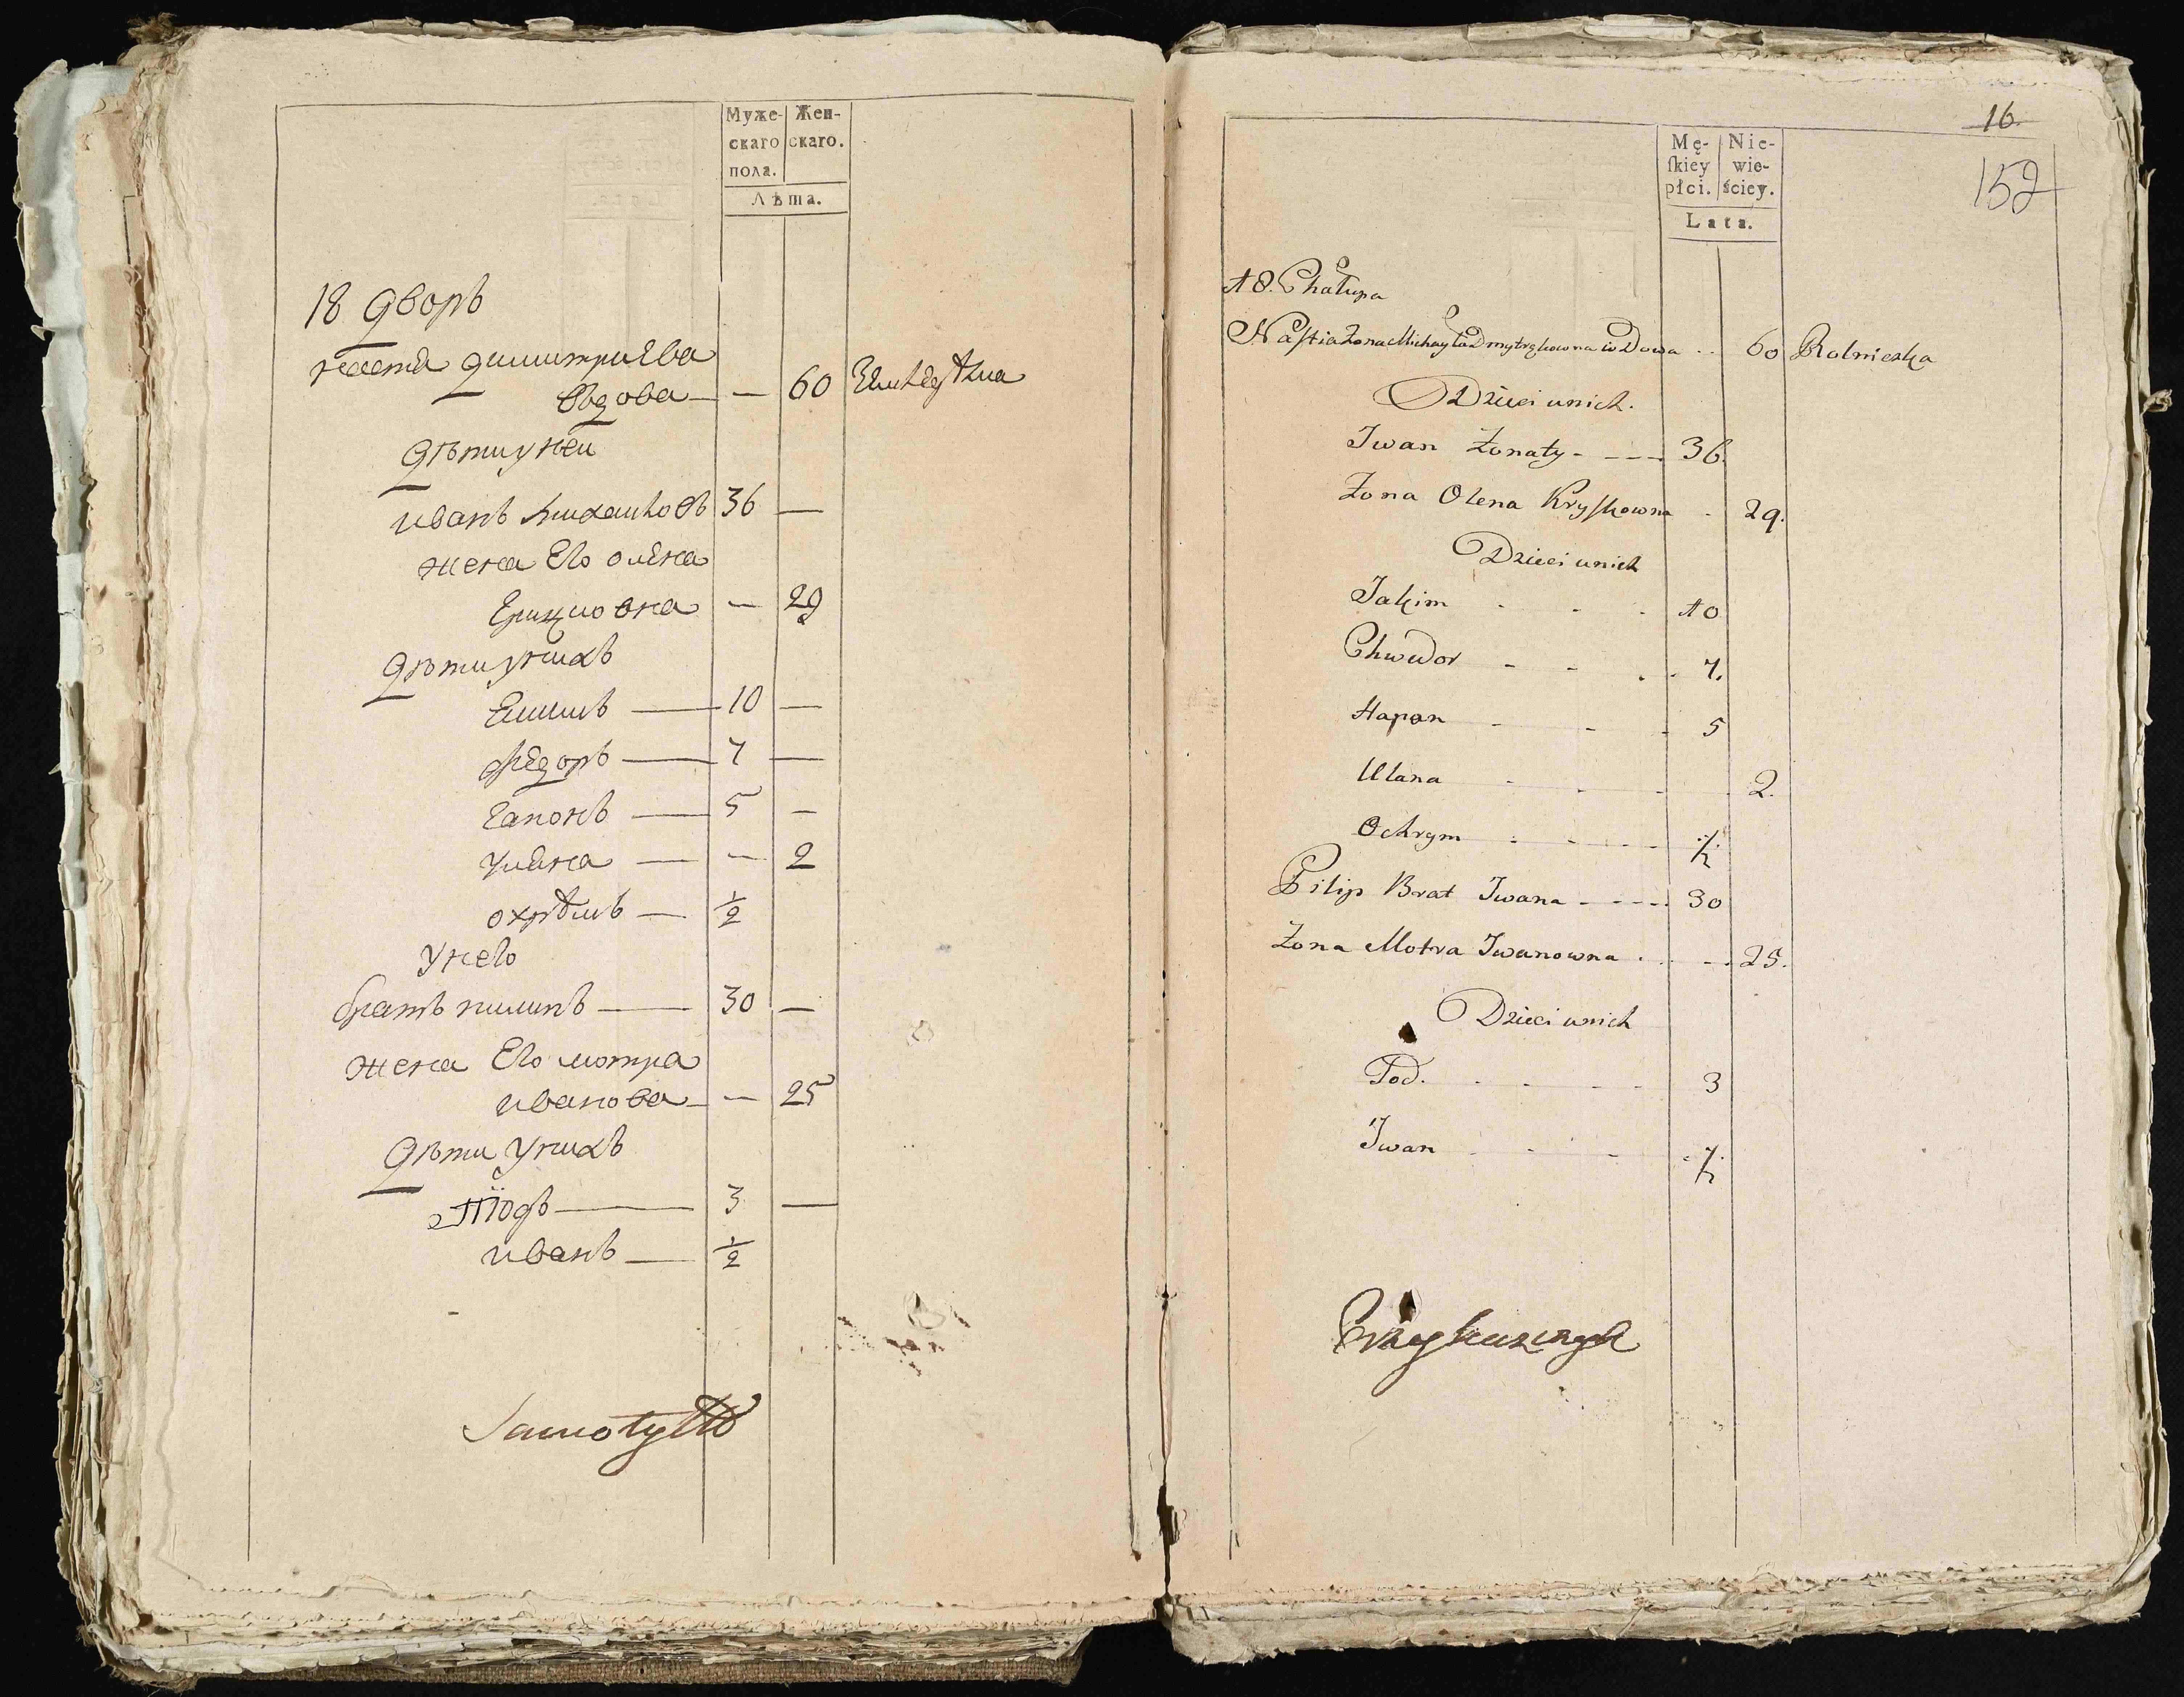 Муже-
скаго
пола.
Жен-
скаго.
Лѣта.
18 дворъ
настя димитриева
вдова — — 60
дѣти у неи
иванъ михаиловъ 36 —
жена Его олена
Грицковна — 29
дѣти у нихъ
Екимъ — 10 —
Федоръ — 7 —
Гапонъ — 5 —
улѣяна — — 2
охрѣмъ — 1/2
У него
братъ пилипъ — 30 —
жена Его мотра
иванова — — 25
Дѣти У нихъ
Тїодъ — 3 —
иванъ — 1/2
16.
152
Mę-
ſkiey
płci.
Nie-
wie-
ściey.
Lata.
18. Chałupa
Naſtia Żona Michayła Dmytrykowna wdowa - - 60 Rolniczka
Dzieci u nich.
Iwan Żonaty - --- 36.
Żona Olena Hryſkowna - 29.
Dzieci u nich
Jakim - - - 10
Chwedor - - - - 7.
Hapon - - - 5
Ulana - - - - 2.
Ochrym - - - - - 1/2
Pilip Brat Iwana - - - - 30
Żona Motra Iwanowna - - - - 25.
Dzieci u nich
Tod. - - - - 3
Iwan - - - - 1/2